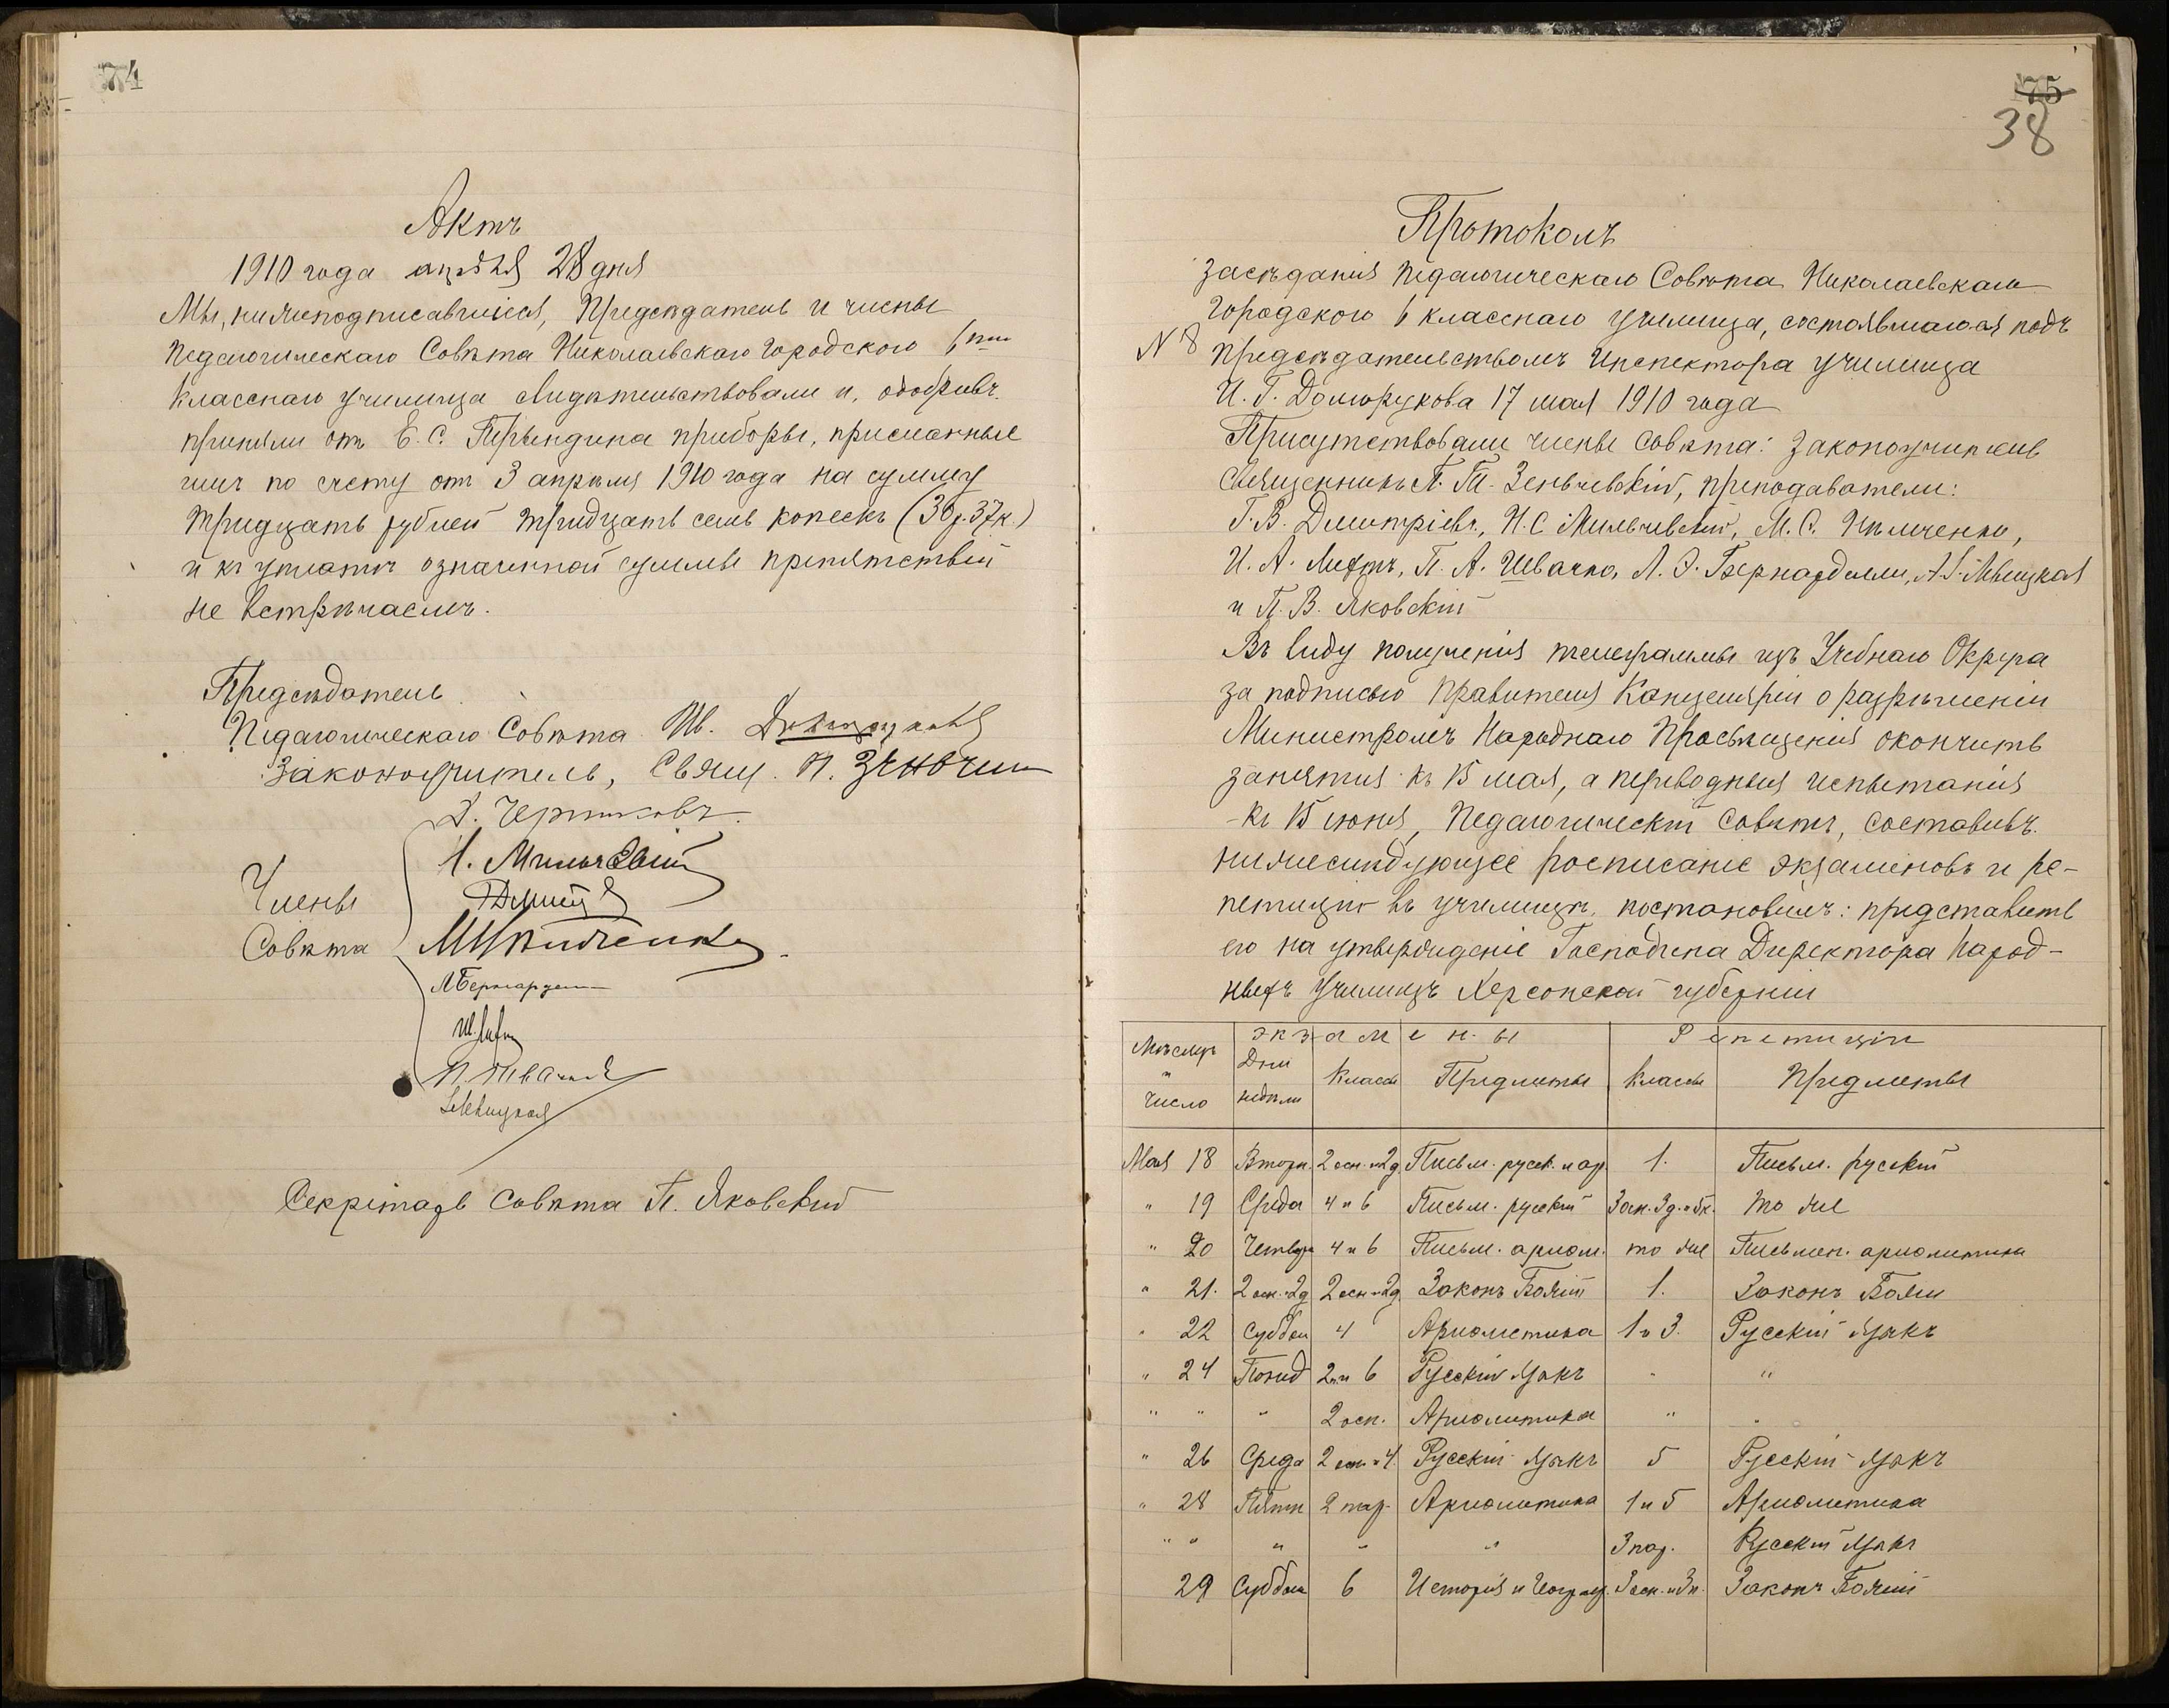 74
Актъ
1910 года апрѣля 28 дня
Мы, нижеподписавшіеся, Предсѣдатель и члены
Педагогическаго Совѣта Николаевскаго Городского 6ти
класснаго училища свидѣтельствовали и, одобривъ,
приняли отъ Е. С. Трындина приборы, присланные
имъ по счету отъ 3 апрѣля 1910 года на сумму
тридцать рублей тридцать семь копеекъ (30 р. 37 к.)
и къ уплатѣ означенной суммы препятствій
не встрѣчаемъ.
Предсѣдатель
Педагогическаго Совѣта Ив.
Законоучитель, Свящ. П.
Члены
Совѣта
Д. Чертковъ.
Н. Мильчевскій
М Ильченко
Л Бернардели
П. Швачко
Левицкая
Секретарь Совѣта П. Яковскій
75
38
Протоколъ
засѣданія Педагогическаго Совѣта Николаевскаго
Городского 6 класснаго училища, состоявшагося подъ
№ 8
предсѣдательствомъ Инспектора училища
И. Г. Долгорукова 17 мая 1910 года
Присутствовали члены Совѣта: Законоучитель
Священникъ П. Т. Зеньчевскій, преподаватели:
Г. В. Дмитріевъ, Н. С Мильчевскій, М. С. Ильченко,
И. А. Лифтъ, П. А. Швачко, Л. Э. Бернарделли, А. Левицкая
и П. В. Яковскій
Въ виду полученія телеграммы изъ Учебнаго Округа
за подписью Правителя Канцеляріи о разрѣшеніи
Министромъ Народнаго Просвѣщенія окончить
занятія къ 15 мая, а переводныя испытанія
- къ 15 іюня, Педагогическій Совѣтъ, составивъ
нижеслѣдующее росписаніе экзаменовъ и ре-
петицій въ училищѣ, постановилъ: представить
его на утвержденіе Господина Директора Народ-
ныхъ Училищъ Херсонской губерніи
Мѣсяцъ и число | Экзамены | Репетиціи
Дни недѣли | Классы | Предметы | Классы | Предметы
Мая 18 | Вторн. | 2 осн. и 2 д | Письм. русск. и ар. | 1. | Письм. русскій
" 19 | Среда | 4 и 6 | Письм. русскій | 3 осн. 3 д. и 5 к. | то же
" 20 | Четверг | 4 и 6 | Письм. ариѳм. | то же | Письмен. ариѳметика
" 21. | 2 осн. и 2 д | 2 осн и 2 д | Законъ Божій | 1. | Законъ Божій
" 22 | Суббот | 4 | Ариѳметика | 1 и 3. | Русскій языкъ
" 24 | Понед | 2 и 6 | Русскій языкъ | " | "
" " | " | 2 осн. | Ариѳметика | " | "
" 26 | Среда | 2 осн и 4. | Русскій языкъ | 5 | Русскій языкъ
" 28 | Пятн | 2 пар. | Ариѳметика | 1 и 5 | Ариѳметика
" " | " | " | " | 3 пар. | Русскій языкъ
29 | Суббот | 6 | Исторія и Географ. | 3 осн. и 3 п. | Законъ Божій